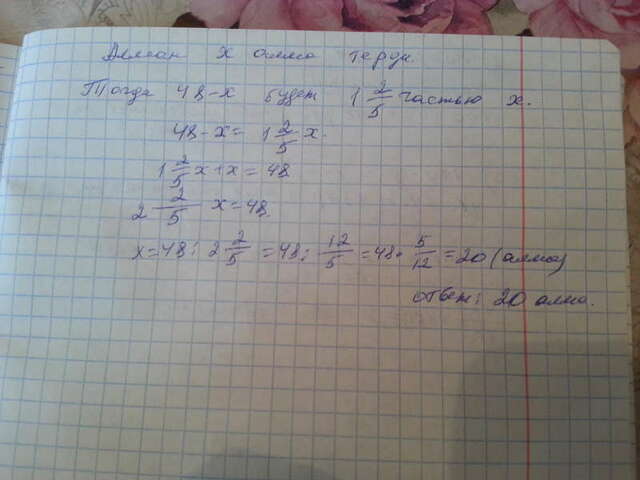 Долган x алма терди.
Тогда 48-x будет 1 2/5 частью x.
48-x= 1 2/5 x.
1 2/5 x+x=48
2 2/5 x=48.
x=48: 2 2/5 =48: 12/5 =48· 5/12 =20(алма)
ответ: 20 алма.